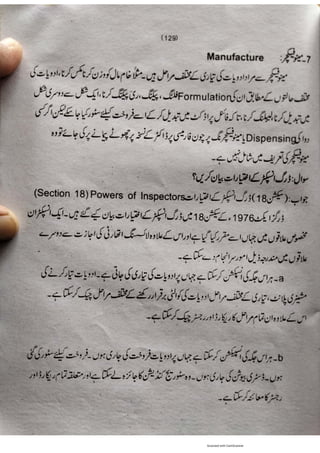 (129)
7۔ مینوفیکچر: Manufacture
مینوفیکچر سے مراد ادویات کی تیاری کے مختلف مراحل ہیں۔ مثلاً خام مال کو وزن کرنا مکس کرنا، ادویات کی
مختلف حالتوں کے مطابق ان کی Formulation فلنگ، پیکنگ، ری پیکنگ کرنا، ایک شکل سے دوسری شکل
میں تبدیل کرنا، لیبلنگ کرنا، تاکہ فائنل پراڈکٹ میں تبدیل کر کے اسے فروخت کیلئے سٹور کیا جا سکے لیکن اگر کسی
دوا کی Dispensing یا مینوفیکچرنگ پرچون فارمیسی پر ڈاکٹر کے نسخہ پر چھوٹے پیمانے پر کی جائے تو وہ
مینوفیکچر کی تعریف میں شامل نہیں ہے۔
سوال: ڈرگ انسپکٹر کے اختیارات بیان کریں؟
جواب: (سیکشن 18) ڈرگ انسپکٹر کے اختیارات Powers of Inspectors (Section 18)
ڈرگز ایکٹ 1976، کے سیکشن 18 میں ڈرگ انسپکٹر کے اختیارات بیان کیے گئے ہیں۔ ایک انسپکٹر ان
مخصوص علاقوں میں جہاں اسے مقرر کیا گیا ہے اور اس کے علاوہ لائسنسنگ اتھارٹی کی اجازت سے دوسرے
علاقوں میں مندرجہ ذیل امور سرانجام دے سکتا ہے۔
a۔ ہر اس جگہ کی انسپکشن کر سکتا ہے جہاں پر ادویات کی تیاری کی جاتی ہے۔ ادویات تیار کرنے کی
مشینری پلانٹ، تیاری کے مختلف مراحل ادویات کی کوالٹی برقرار رکھنے کے مختلف مراحل چیک کر سکتا ہے۔
اس کے علاوہ ان تمام مراحل کا ریکارڈ اور رجسٹر چیک کر سکتا ہے۔
b۔ ہر اس جگہ کی انسپکشن کر سکتا ہے جہاں پر ادویات فروخت کی جا رہی ہوں۔ فروخت کیلئے سٹور کی گئی
ہوں۔ ڈسٹری بیوشن کی جا رہی ہوں۔ وہ سٹوریج کنڈیشن کا جائزہ لے سکتا ہے اور متعلقہ تمام ریکارڈ اور
رجسٹر کا معائنہ کر سکتا ہے۔
Scanned with CamScanner